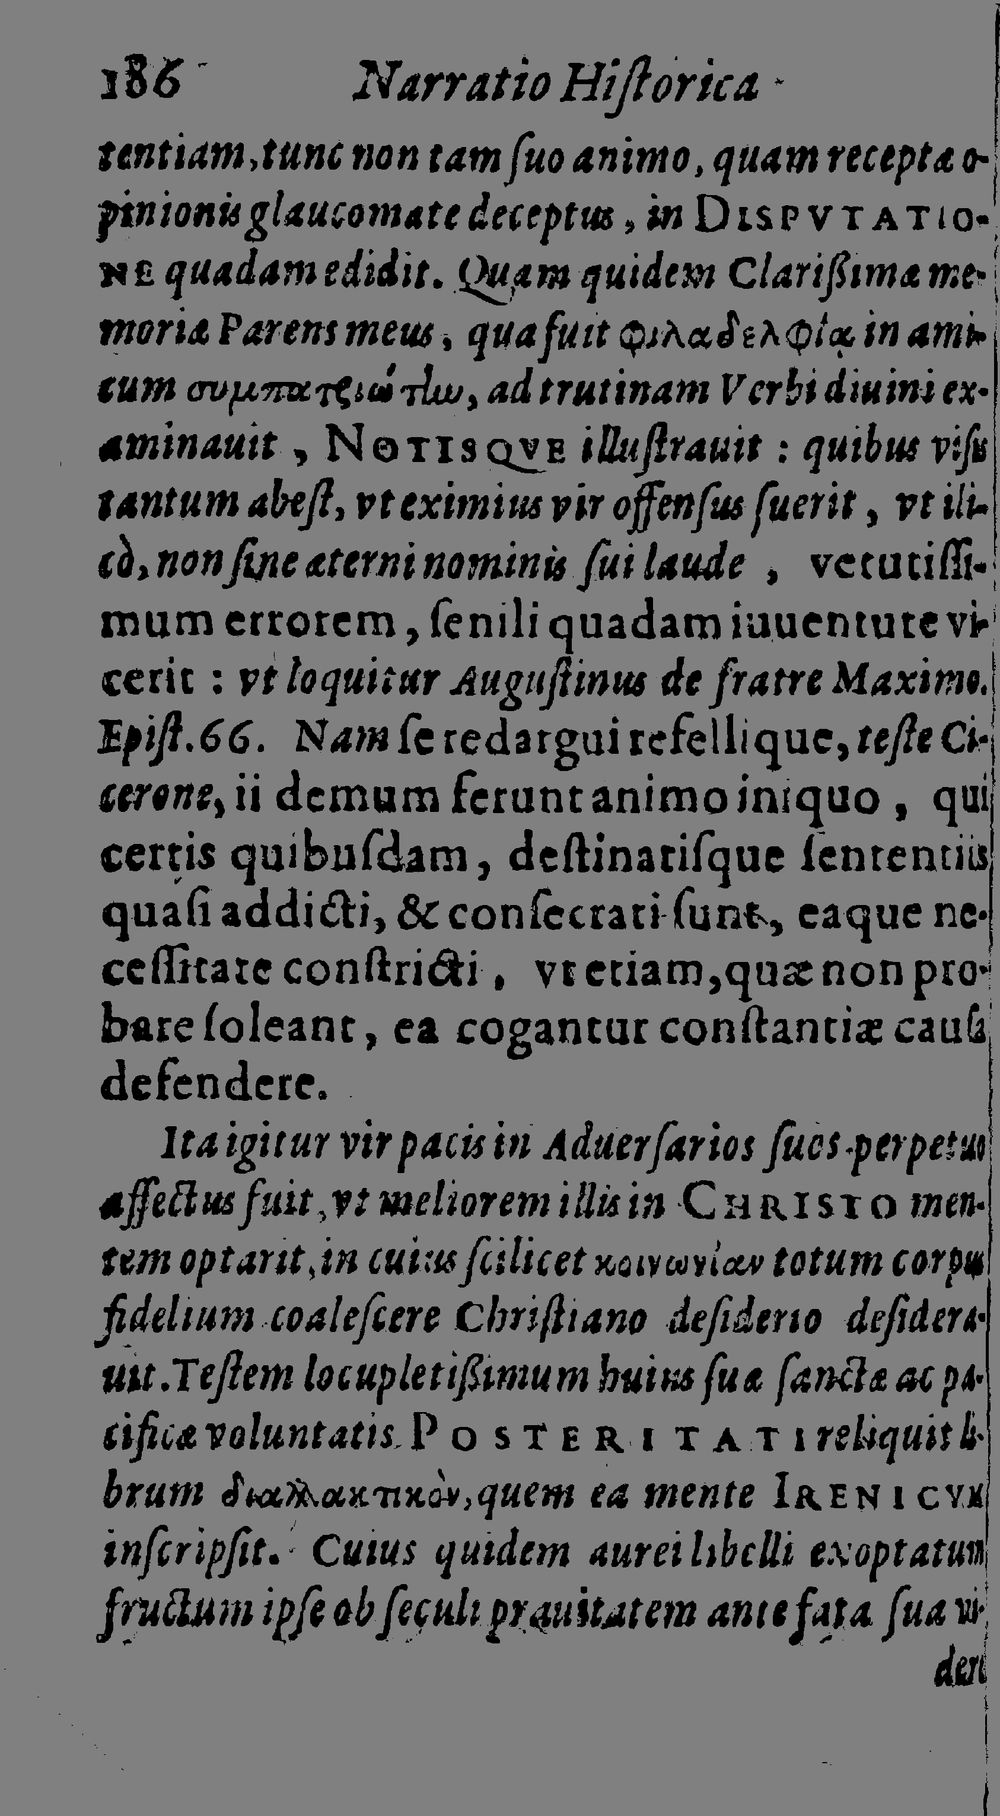 186 Narratio Hiſtorica
tentiam, tunc non tam ſuo animo, quam receptæ o-
pinionis glaucomate deceptus, in DISPVTATIO-
NE quadam edidit. Quam quidem Clarißimæ me-
moriæ Parens meus, qua fuit φιλαδελφίᾳ in ami-
cum συμπατριώτην, ad trutinam Verbi diuini ex-
aminauit, NOTISQVE illuſtrauit : quibus viſis
tantum abeſt, vt eximius vir offenſus fuerit, vt ili-
cò, non ſine æterni nominis ſui laude, vetutiſſi-
mum errorem, ſenili quadam iuuentute vi-
cerit : vt loquitur Auguſtinus de fratre Maximo.
Epiſt. 66. Nam ſe redargui refellique, teſte Ci-
cerone, ii demum ferunt animo iniquo, qui
certis quibuſdam, deſtinatiſque ſententiis
quaſi addicti, & conſecrati ſunt, eaque ne-
ceſſitate conſtricti, vt etiam, quæ non pro-
bare ſoleant, ea cogantur conſtantiæ cauſa
defendere.
Ita igitur vir pacis in Aduerſarios ſuos perpetuo
affectus fuit, vt meliorem illis in CHRISTO men-
tem optarit, in cuius ſcilicet κοινωνίαν totum corpus
fidelium coaleſcere Chriſtiano deſiderio deſidera-
uit. Teſtem locupletißimum huius ſuæ ſanctæ ac pa-
cificæ voluntatis POSTERITATI reliquit li-
brum διαλλακτικὸν, quem ea mente IRENICVM
inſcripſit. Cuius quidem aurei libelli exoptatum
fructum ipſe ob ſeculi prauitatem ante fata ſua vi-
dere